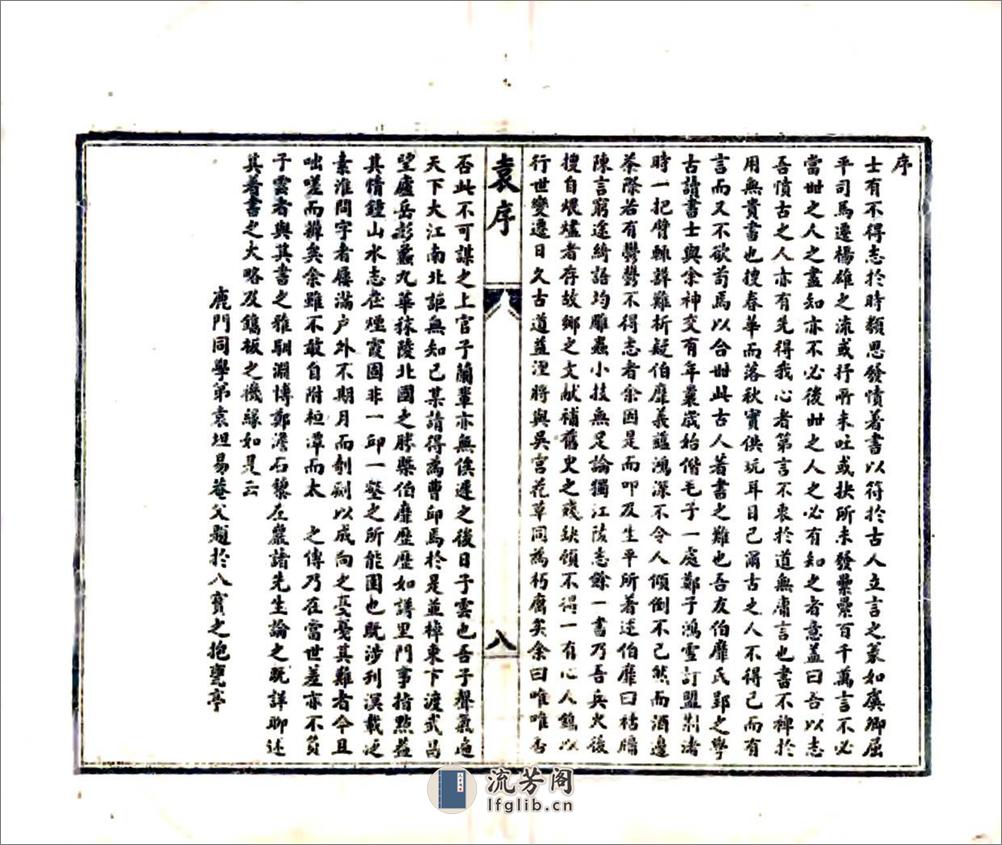 序
士有不得志於時類思發憤著書以符於古人立言之篆如虞卿屈
平司馬遷楊雄之流或抒所未吐或抉所未發纍纍百千萬言不必
當世之人之盡知亦不必後世之人之必有知之者意蓋曰吾以志
吾憤古之人亦有先得我心者第言不衷於道無庸言也書不裨於
用無貴書也搜春華而落秋實供玩耳目已爾古之人不得已而有
言而又不欲苟焉以合世此古人著書之難也吾友伯靡氏郢之學
古請書士與余神交有年曩歲始偕毛子一處鄭子鴻雪訂盟荆渚
時一把臂輒詳難析疑伯靡義蘊鴻深不令人傾倒不已然而酒邊
茶際若有鬱鬱不得志者余因是而叩及生平所著述伯靡曰枯腸
陳言窮途綺語均雕蟲小技無足論獨江陵志餘一書乃吾兵火後
搜自煨燼者存故鄉之文獻補舊史之殘缺顧不得一有心人鐫以
行世變遷日久古道益湮將與吳宮花草同為朽腐矣余曰唯唯否
袁序
八
否此不可謀之上官子蘭輩亦無俟遲之後日子雲也吾子聲氣遍
天下大江南北詎無知己某請得為曹邱焉於是並棹東下渡武昌
望廬岳彭蠡九華秣陵北國之勝槩伯靡歷歷如譜里門事指點益
其情鍾山水志在煙霞固非一邱一壑之所能囿也既涉列溟載泛
秦淮問字者屨滿户外不期月而剞劂以成向之憂憂其難者今且
咄嗟而辦矣余雖不敢自附桓譚而太 之傳乃在當世差亦不負
子雲者與其書之雅馴淵博鄭澹石黎左嚴諸先生論之既詳聊述
其著書之大略及鐫板之機緣如是云
鹿門同學弟袁坦易菴父題於八寶之抱甕亭
流芳阁
lfglib.cn